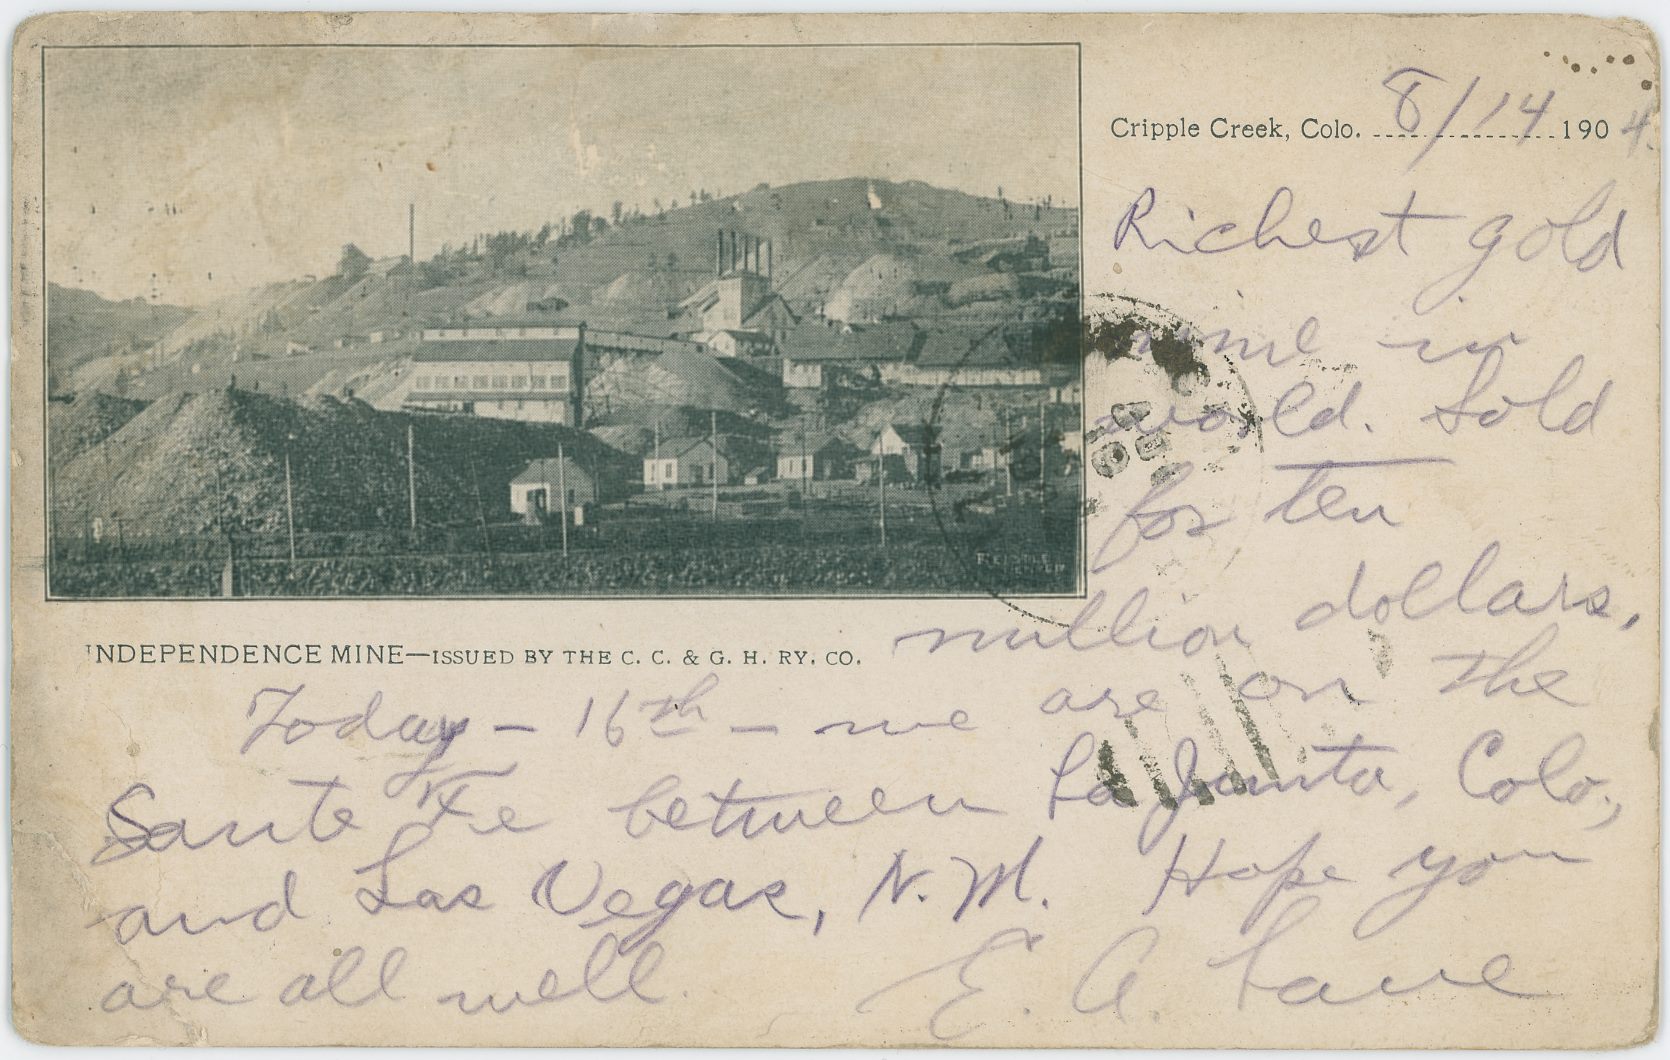 Cripple Creek, Colo. 8/14 1904.
Richest gold
mine in
world. Sold
for ten
million dollars.
INDEPENDENCE MINE—ISSUED BY THE C. C. & G. H. RY. CO.
Today - 16th - we are on the
Santa Fe between La Junta, Colo.,
and Las Vegas, N.M. Hope you
are all well. E. A.